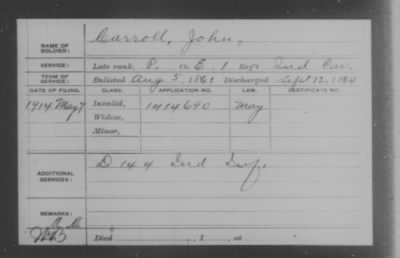 NAME OF SOLDIER: Carroll, John,
SERVICE: Late rank, P. Co. E, 1 Reg't Ind Cav.
TERM OF SERVICE: Enlisted Aug 5, 1861 Discharged Sept 12, 1864
DATE OF FILING. CLASS. APPLICATION NO. LAW. CERTIFICATE NO.
1914 May 7 Invalid, 1414690 May
Widow,
Minor,
ADDITIONAL SERVICES: D 144 Ind Inf.
REMARKS:
Died , 1 , at